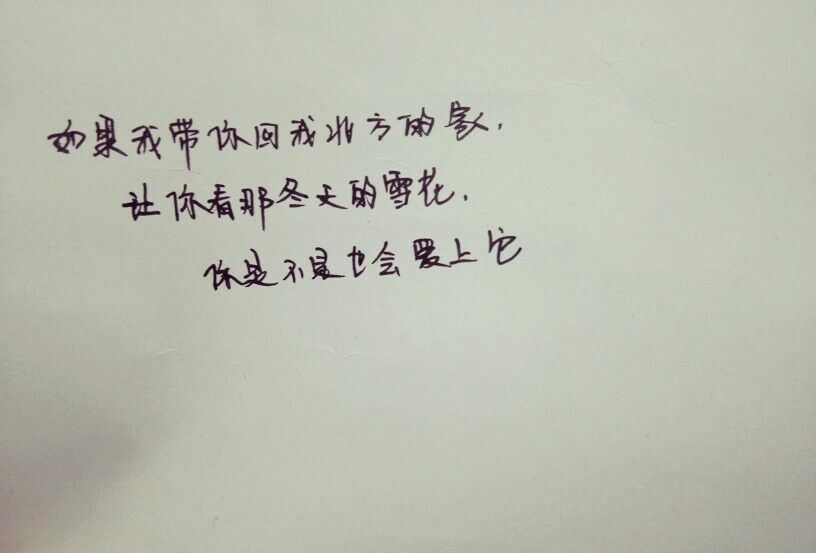 如果我带你回我北方的家，
让你看那冬天的雪花，
你是不是也会爱上它